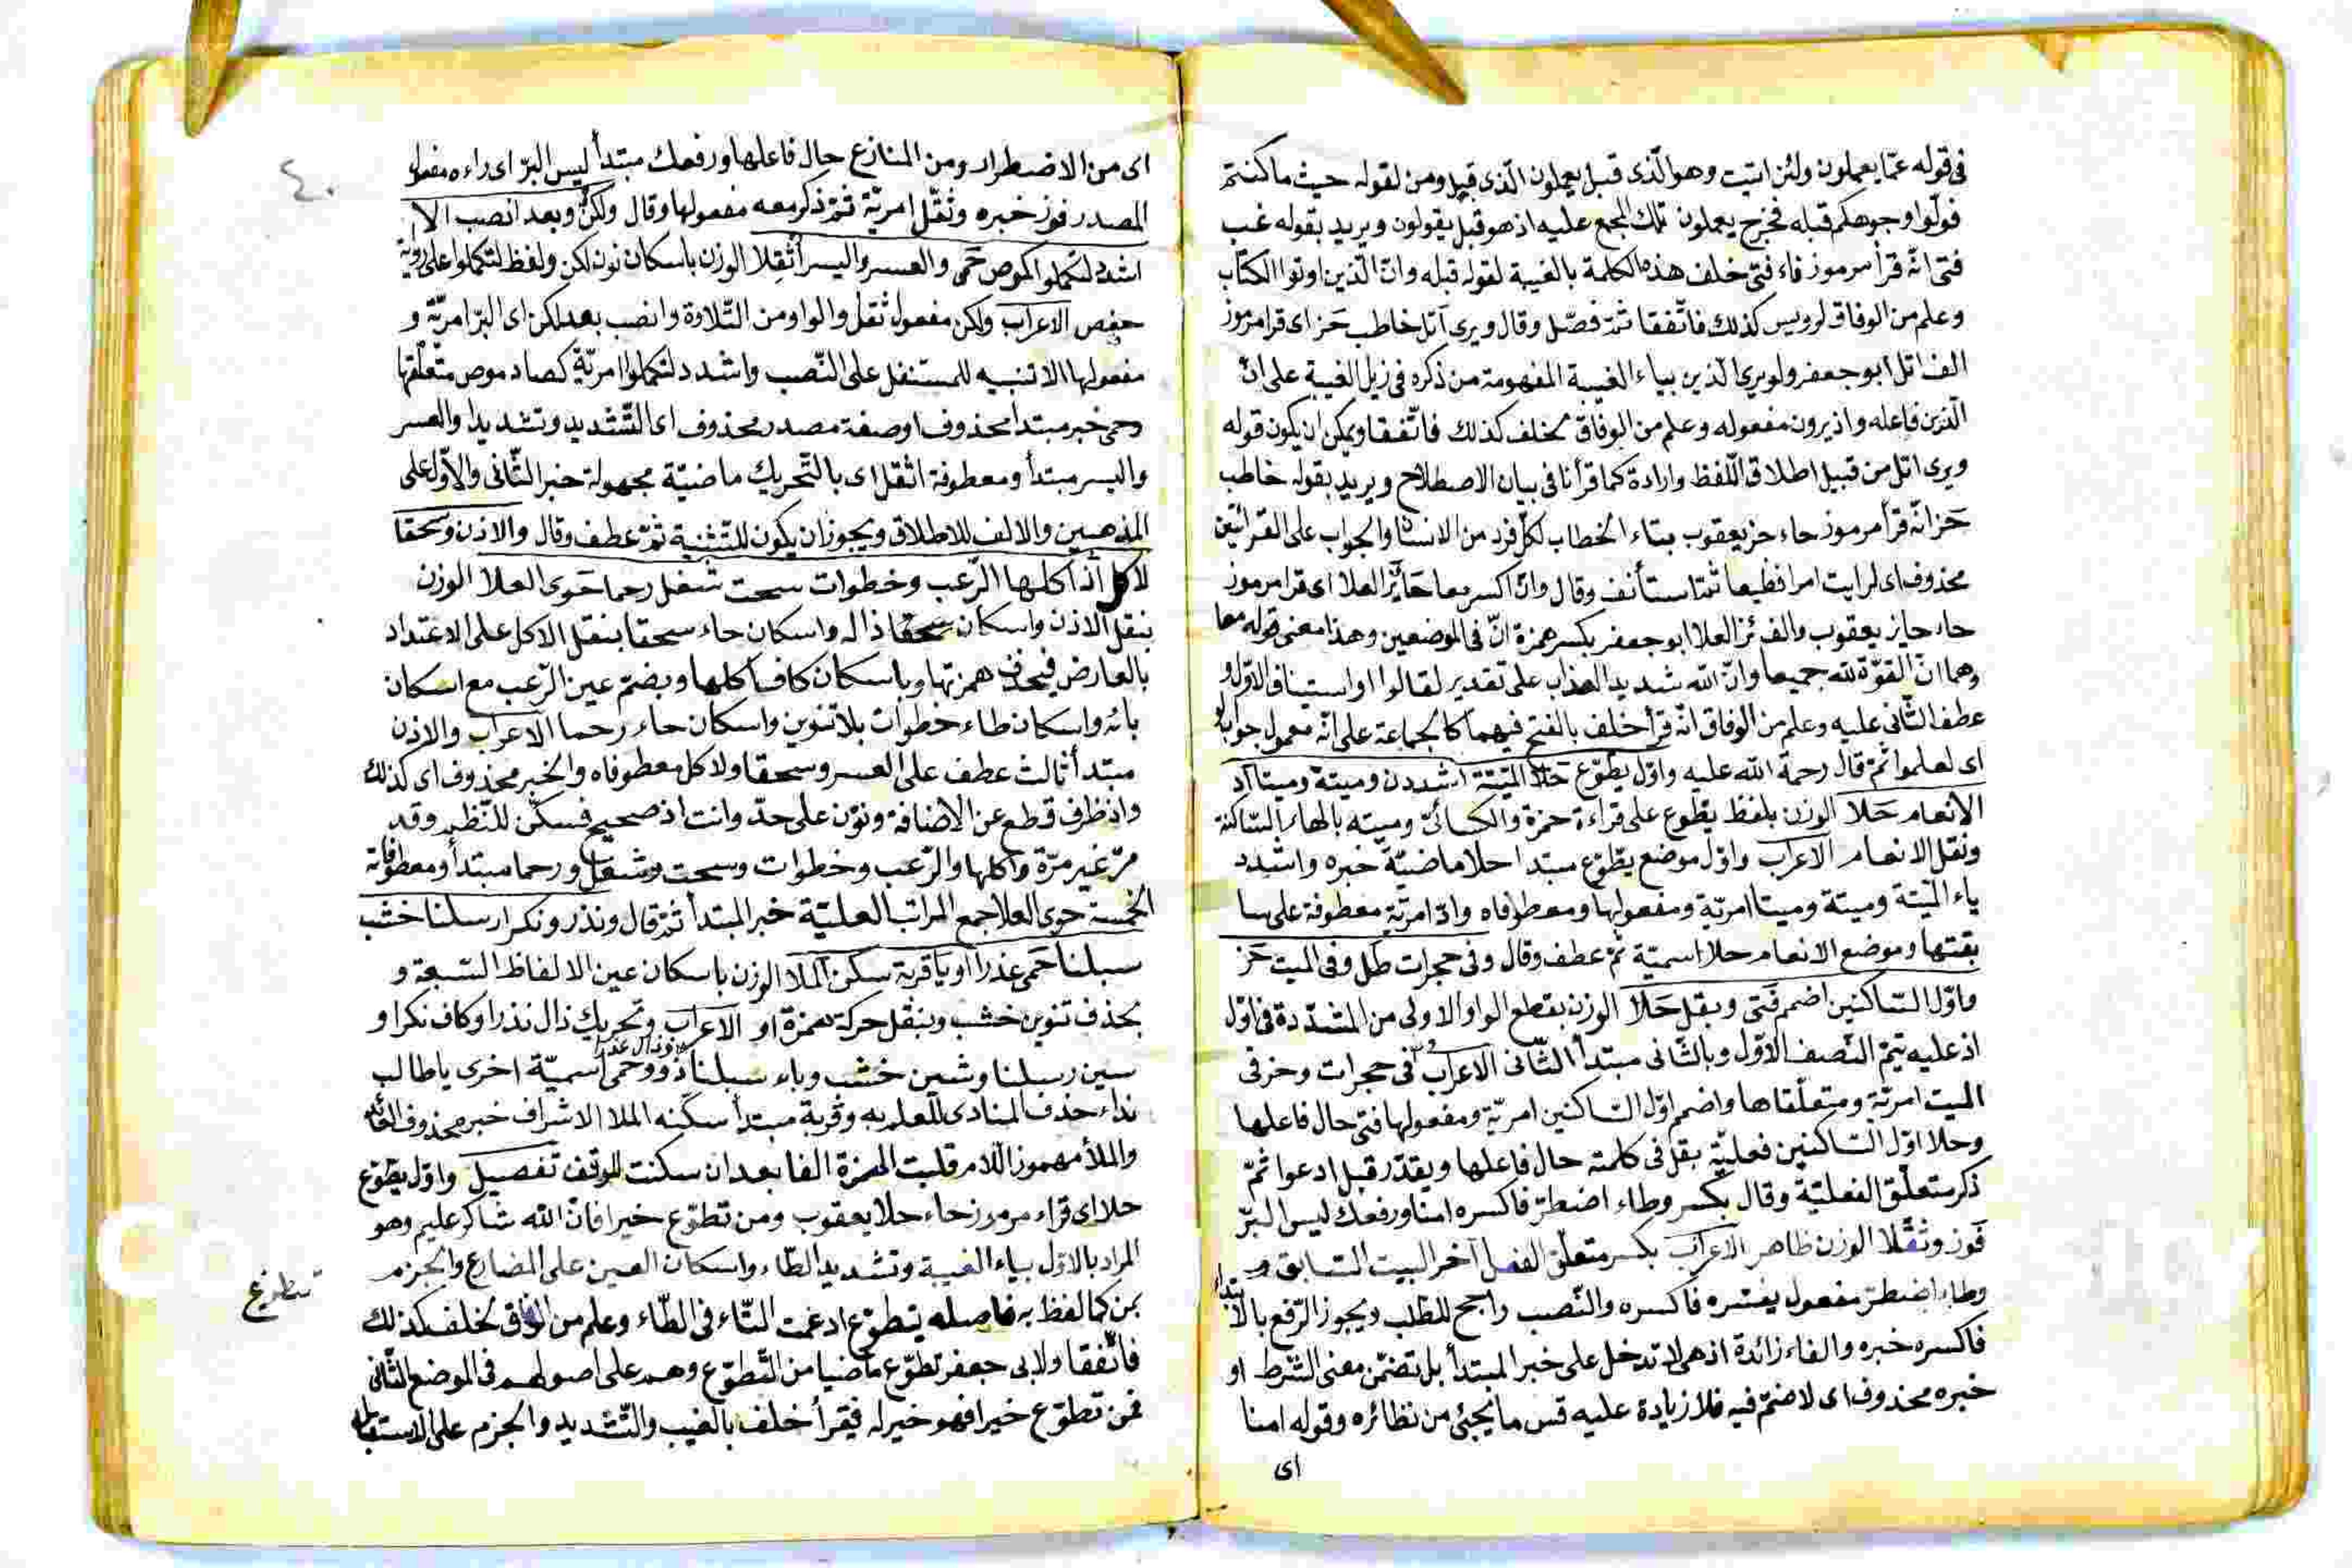 فى قوله عمّا يعملون ولئن اتيت وهو الّذى قبل يعملون الّذى قبل ومن لقوله حيث ما كنتم
فولّوا وجوهكم قبله فخرج يعملون تلك المجمع عليه اذ هو قبل يقولون ويريد بقوله غب
فتى انّه قرأ مرموز فاء فتى خلف هذه الكلمة بالغيبة لقوله قبله وانّ الّذين اوتوا الكتاب
وعلم من الوفاق لرويس كذلك فاتّفقا ثمّ فصّل وقال ويرى اتل خاطب حز اى قرا مرموز
الف اتل ابو جعفر ولو يرى الّذين بياء الغيبة المفهومة من ذكره فى زيل الغيبة على انّ
الّذين فاعله واذ يرون مفعوله وعلم من الوفاق لخلف كذلك فاتّفقا ويمكن ان يكون قوله
ويرى اتل من قبيل اطلاق اللّفظ وارادة كما قرأنا فى بيان الاصطلاح ويريد بقوله خاطب
حز انّه قرأ مرموز حاء حز يعقوب بتاء الخطاب لكلّ فرد من الانسان والجواب على القرائتين
محذوف اى لرايت امرا فظيعا ثمّ استأنف وقال وانّ اكسر معا حائز العلا اى قرا مرموز
حاء حايز يعقوب والف ئز العلا ابو جعفر بكسر همزة انّ فى الموضعين وهذا معنى قوله معا
وهما انّ القوّة لله جميعا وانّ الله شديد العذاب على تقدير لقالوا او استيناف الاوّل و
عطف الثّانى عليه وعلم من الوفاق انّه قرأ خلف بالفتح فيهما كالجماعة على انّه معمول جواب لو
اى لعلموا ثمّ قال رحمة الله عليه واوّل يطّوّع حلا الميتة اشددن وميتة وميتا اد
الانعام حلا الوزن بلفظ يطوع على قراءة حمزة والكسائىّ وميته بالهاء السّاكنة
ونقل الانعام الاعراب واوّل موضع يطّوّع مبتدا حلا ماضيّة خبره واشدد
ياء الميّتة وميتة وميتا امريّة ومفعولها ومعطوفاه واد امريّة معطوفة على
بقتها وموضع الانعام حلا اسميّة ثمّ عطف وقال وفى حجرات طل وفى الميت حز
واوّل السّاكنين اضمم فتى وبقل حلا الوزن بقطع الواو الاولى من المشدّدة فى اوّل
اذ عليه يتمّ النّصف الاوّل وبالثّانى مبتدأ الثّانى الاعراب وفى حجرات وحز فى
الميت امريّة ومتعلّقاها واضمم اوّل السّاكنين امريّة ومفعولها فتى حال فاعلها
وحلا اوّل السّاكنين فعليّة بقل فى كلمة حال فاعلها ويقدّر قبل ادعوا ثمّ
ذكر متعلّق الفعليّة وقال بكسر وطاء اضطرّ فاكسره امنا ورفعك ليس البرّ
فوز وثقّلا الوزن ظاهر الاعراب بكسر متعلّق الفعل آخر البيت السّابق و
وطاء اضطرّ مفعول يفسّره فاكسره والنّصب راجح للطّلب ويجوز الرّفع بالابتداء
فاكسره خبره والفاء زائدة اذ هى لا تدخل على خبر المبتدأ بل تضمّن معنى الشّرط او
خبره محذوف اى لا ضمّ فيه فلا زيادة عليه قس ما يجئ من نظائره وقوله امنا
اى
٤٠
اى من الاضطرار ومن المنازع حال فاعلها ورفعك مبتدأ ليس البرّ اى راءه مفعول
المصدر فوز خبره وثقّل امريّة ثمّ ذكر معه مفعولها وقال ولكن وبعد انصب الا
اشدد لتكملوا كموص حمى والعسر واليسر أثقلا الوزن باسكان نون لكن ولفظ لتكملوا على رواية
حفص الاعراب ولكن مفعول ثقّل والواو من التّلاوة وانصب بعد لكن اى البرّ امريّة و
مفعولها الا تنبيه للمستقل على النّصب واشدد لتكملوا امريّة كصاد موص متعلّقها
وحمى خبر مبتدا محذوف او صفة مصدر محذوف اى التّشديد وتشديدا والعسر
واليسر مبتدأ ومعطوفة اثقل اى بالتّحريك ماضيّة مجهولة خبر الثّانى والاوّل على
المذهبين والالف للاطلاق ويجوز ان يكون للتّثنية ثمّ عطف وقال والاذن وسحقا
لاكل اذ اكلها الرّعب وخطوات سحت شغل رحما حوى العلا الوزن
بنقل الاذن واسكان ذاله واسكان حاء سحقا بنقل الاكل على الاعتداد
بالعارض فيحذف همزتها وباسكان كاف اكلها وبضمّ عين الرّعب مع اسكان
بائه واسكان طاء خطوات بلا تنوين واسكان حاء رحما الاعراب والاذن
مبتدأ ثالث عطف على العسر وسحقا ولاكل معطوفاه والخبر محذوف اى كذلك
واذ ظرف قطع عن الاضافة ونوّن على حدّ وانت اذ صحيح فسكّن للنّظم وقد
مرّ غير مرّة واكلها والرّعب وخطوات وسحت وشغل ورحما مبتدأ ومعطوفاته
الخمسة حوى العلا جمع المراتب العليّة خبر المبتدأ ثمّ قال ونذر ونكرا رسلنا خشب
سبلنا حمى عذرا او يا قربة سكن الملا الوزن باسكان عين الالفاظ السّبعة و
بحذف تنوين خشب وبنقل حركة همزة او الاعراب وتحريك ذال نذرا وكاف نكرا و
سين رسلنا وشين خشب وباء سبلنا وذال عذرا ذو وحمى اسميّة اخرى يا طالب
نداء حذف المنادى للعلم به وقربة مبتدأ سكّنه الملا الاشراف خبره محذوف العائد
والملأ مهموز اللّام قلبت الهمزة الفا بعد ان سكنت للوقف تفصيل واوّل يطّوّع
حلا اى قراء مرموز حاء حلا يعقوب ومن تطوّع خيرا فانّ الله شاكر عليم وهو
المراد بالاوّل بياء الغيبة وتشديد الطّاء واسكان العين على المضارع والجزم
بمن كما لفظ به فاصله يتطوّع ادغمت التّاء فى الطّاء وعلم من الوفاق لخلف كذلك
فاتّفقا ولابى جعفر تطوّع ماضيا من التّطوّع وهم على اصولهم فى الموضع الثّانى
فمن تطوّع خيرا فهو خير له فيقرأ خلف بالغيب والتّشديد والجزم على الاستقبال